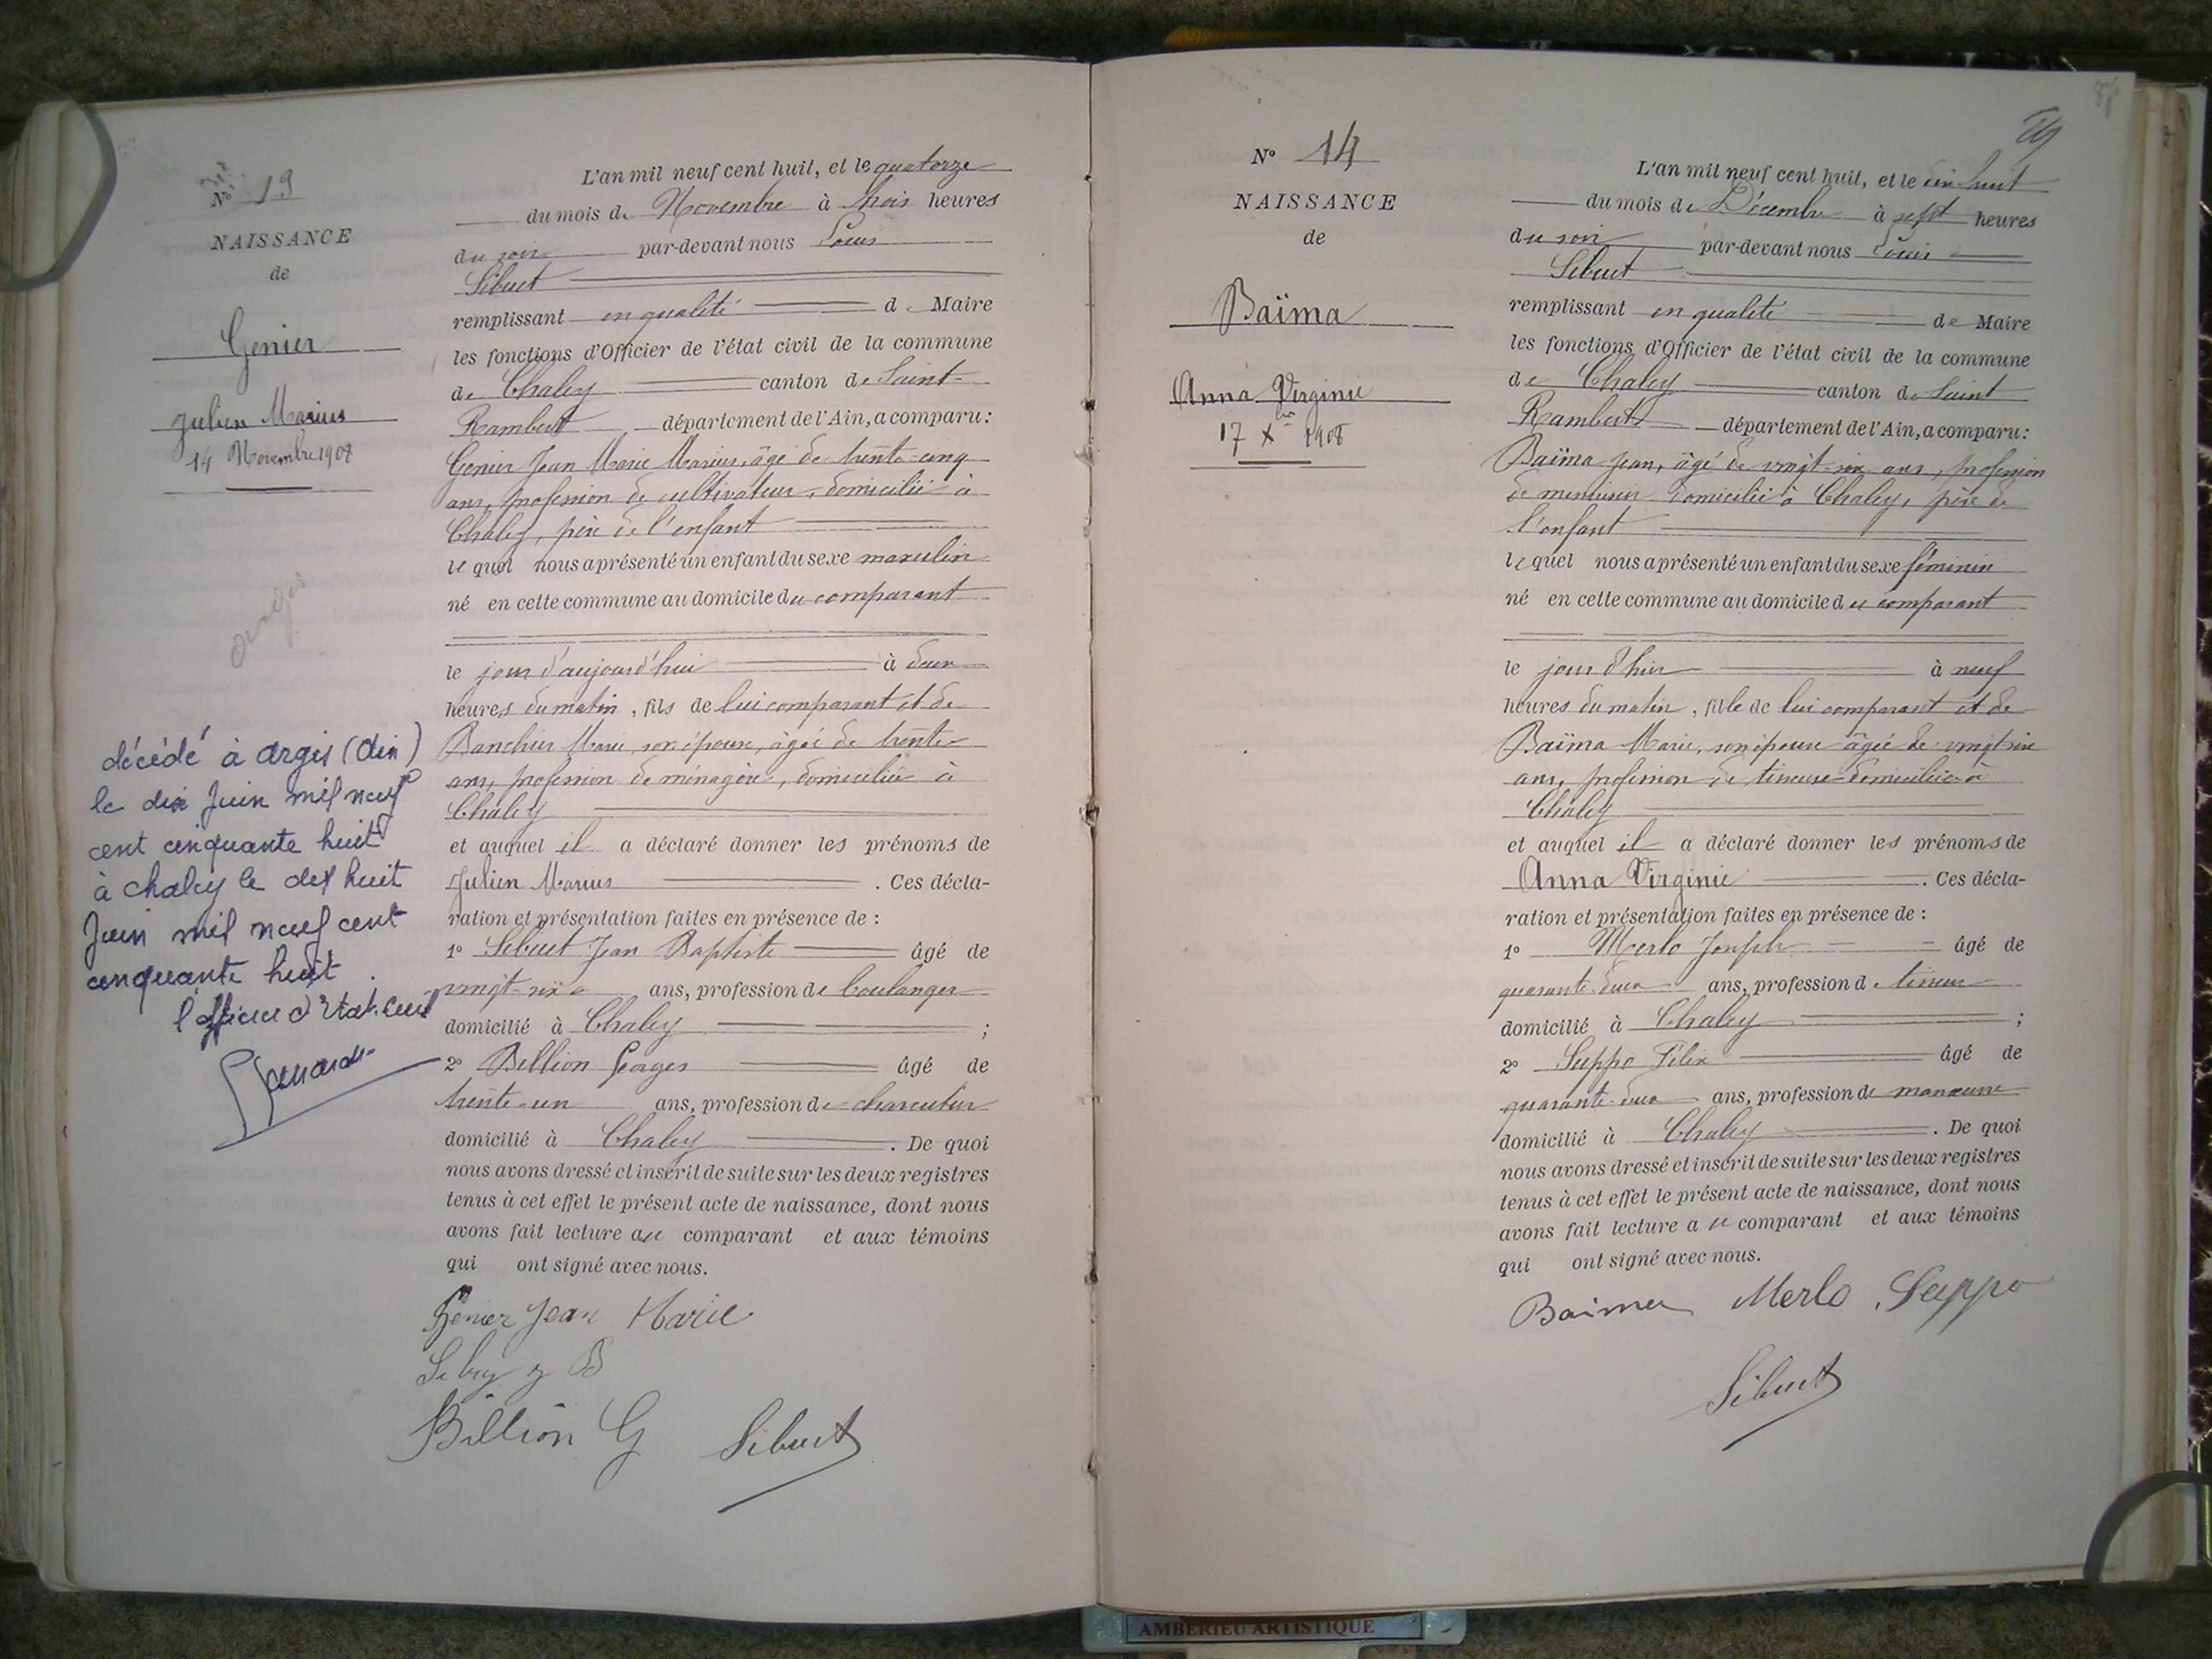 N° 13
NAISSANCE
de
Genier
Julien Marius
14 Novembre 1908
décédé à argis (Ain)
le dix Juin mil neuf
cent cinquante huit
à chaley le dix huit
Juin mil neuf cent
cinquante huit.
l'officier d'Etat-Civil
L'an mil neuf cent huit, et le quatorze
du mois de Novembre à trois heures
du soir par-devant nous Louis
Sibuet
remplissant en qualité de Maire
les fonctions d'Officier de l'état civil de la commune
de Chaley canton de Saint-
Rambert département de l'Ain, a comparu:
Genier Jean Marie Marius, âgé de trente-cinq
ans, profession de cultivateur, domicilié à
Chaley, père de l'enfant
lequel nous a présenté un enfant du sexe masculin
né en cette commune au domicile du comparant
le jour d'aujourd'hui à deux
heures du matin, fils de lui comparant et de
Marie, son épouse, âgée de trente
ans, profession de ménagère, domiciliée à
Chaley
et auquel il a déclaré donner les prénoms de
Julien Marius. Ces décla-
ration et présentation faites en présence de :
1° Sibuet Jean Baptiste âgé de
vingt-six ans, profession de boulanger
domicilié à Chaley ;
2° Billion Georges âgé de
trente-un ans, profession de charcutier
domicilié à Chaley. De quoi
nous avons dressé et inscrit de suite sur les deux registres
tenus à cet effet le présent acte de naissance, dont nous
avons fait lecture au comparant et aux témoins
qui ont signé avec nous.
Genier Jean Marie
Billion G Sibuet
N° 14
NAISSANCE
de
Baïma
Anna Virginie
17 Xbre 1908
L'an mil neuf cent huit, et le dix-huit
du mois de Décembre à sept heures
du soir par-devant nous Louis
Sibuet
remplissant en qualité de Maire
les fonctions d'Officier de l'état civil de la commune
de Chaley canton de Saint
Rambert département de l'Ain, a comparu:
Baïma Jean, âgé de vingt-six ans, profession
de menuisier domicilié à Chaley, père de
l'enfant
lequel nous a présenté un enfant du sexe féminin
né en cette commune au domicile du comparant
le jour d'hier à neuf
heures du matin, fille de lui comparant et de
Baïma Marie, son épouse âgée de vingt six
ans, profession de tisseuse domiciliée à
Chaley
et auquel il a déclaré donner les prénoms de
Anna Virginie. Ces décla-
ration et présentation faites en présence de :
1° Merlo Joseph âgé de
quarante-deux ans, profession de tisseur
domicilié à Chaley ;
2° Suppo Félix âgé de
quarante-deux ans, profession de manœuvre
domicilié à Chaley. De quoi
nous avons dressé et inscrit de suite sur les deux registres
tenus à cet effet le présent acte de naissance, dont nous
avons fait lecture au comparant et aux témoins
qui ont signé avec nous.
Baima Merlo Suppo
Sibuet
AMBERIEU ARTISTIQUE